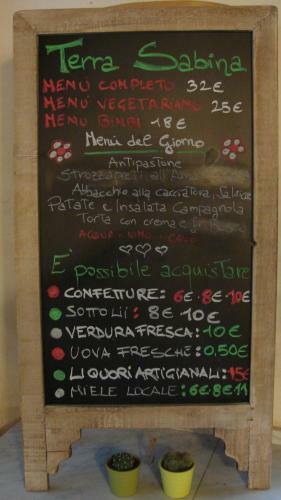 Terra Sabina
MENÙ COMPLETO 32€
MENÙ VEGETARIANO 25€
MENÙ BIMBI 18€
Menù del Giorno
Antipastone
Strozzapreti all'
Abbacchio alla cacciatora, Salsicce
Patate e Insalata Campagnola
Torta con crema e
ACQUA - VINO - CAFFÈ
E' possibile acquistare
CONFETTURE: 6€·8€·10€
SOTTOLII: 8€ 10€
VERDURA FRESCA: 10€
UOVA FRESCHE: 0,50€
LIQUORI ARTIGIANALI: 15€
MIELE LOCALE: 6€·8€·11